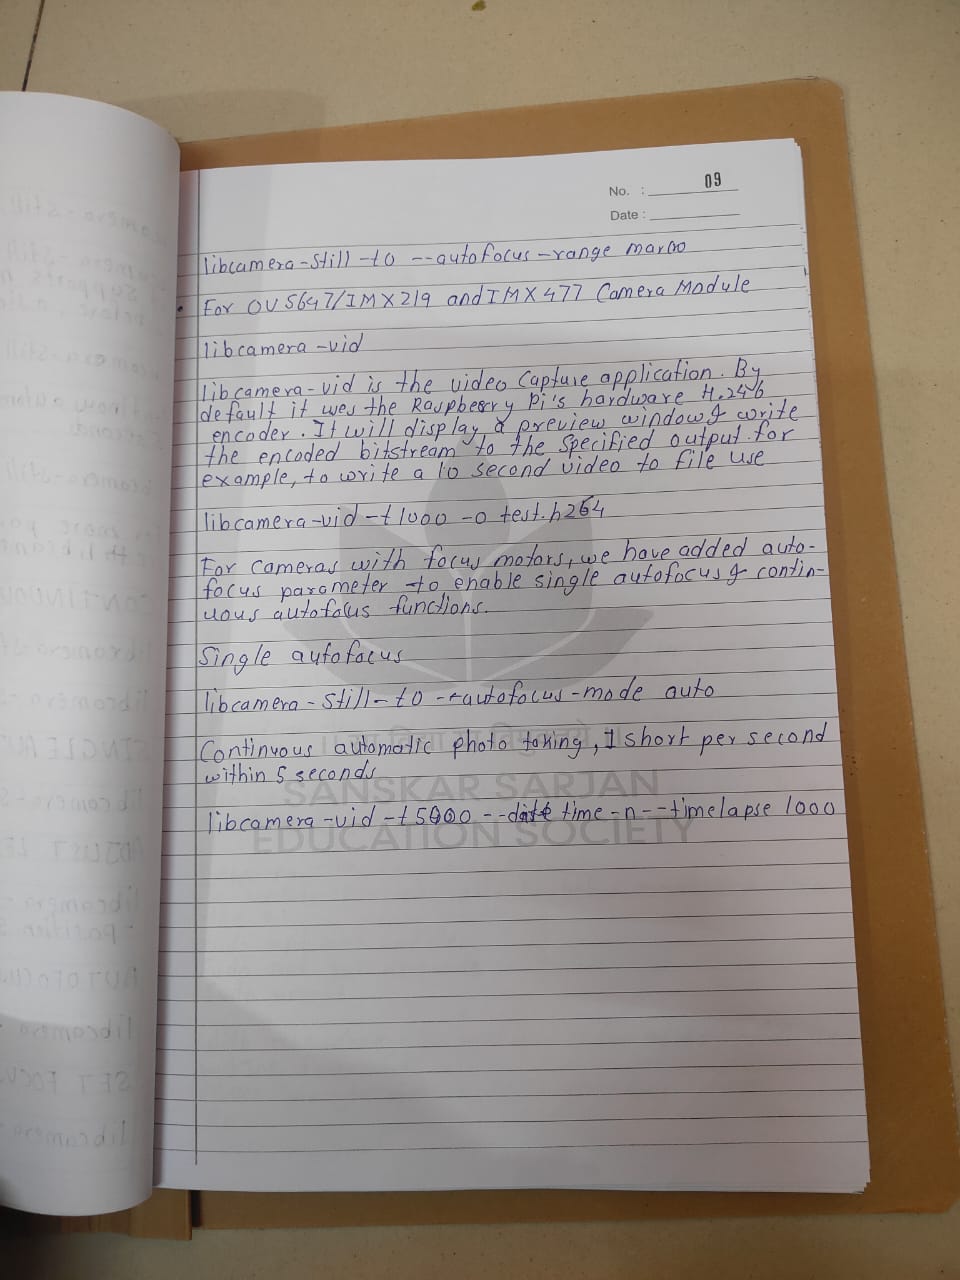 No. : 09
Date :
libcamera-still -t0 --autofocus-range
• For OV5647/IMX219 and IMX477 Camera Module
libcamera-vid
libcamera-vid is the video Capture application. By
default it the Raspberry Pi's hardware H.246
encoder. It will display a preview window & write
the encoded bitstream to the specified output. for
example, to write a 10 second video to file use
libcamera-vid -t 1000 -o test.h264
For cameras with focus motors, we have added auto-
focus parameter to enable single autofocus & contin-
uous autofocus functions.
Single autofocus
libcamera-still -t0 --autofocus-mode auto
Continuous automatic photo taking, 1 short per second
within 5 seconds
libcamera-vid -t 5000 -- time -n --timelapse 1000
SANSKAR SARJAN
EDUCATION SOCIETY